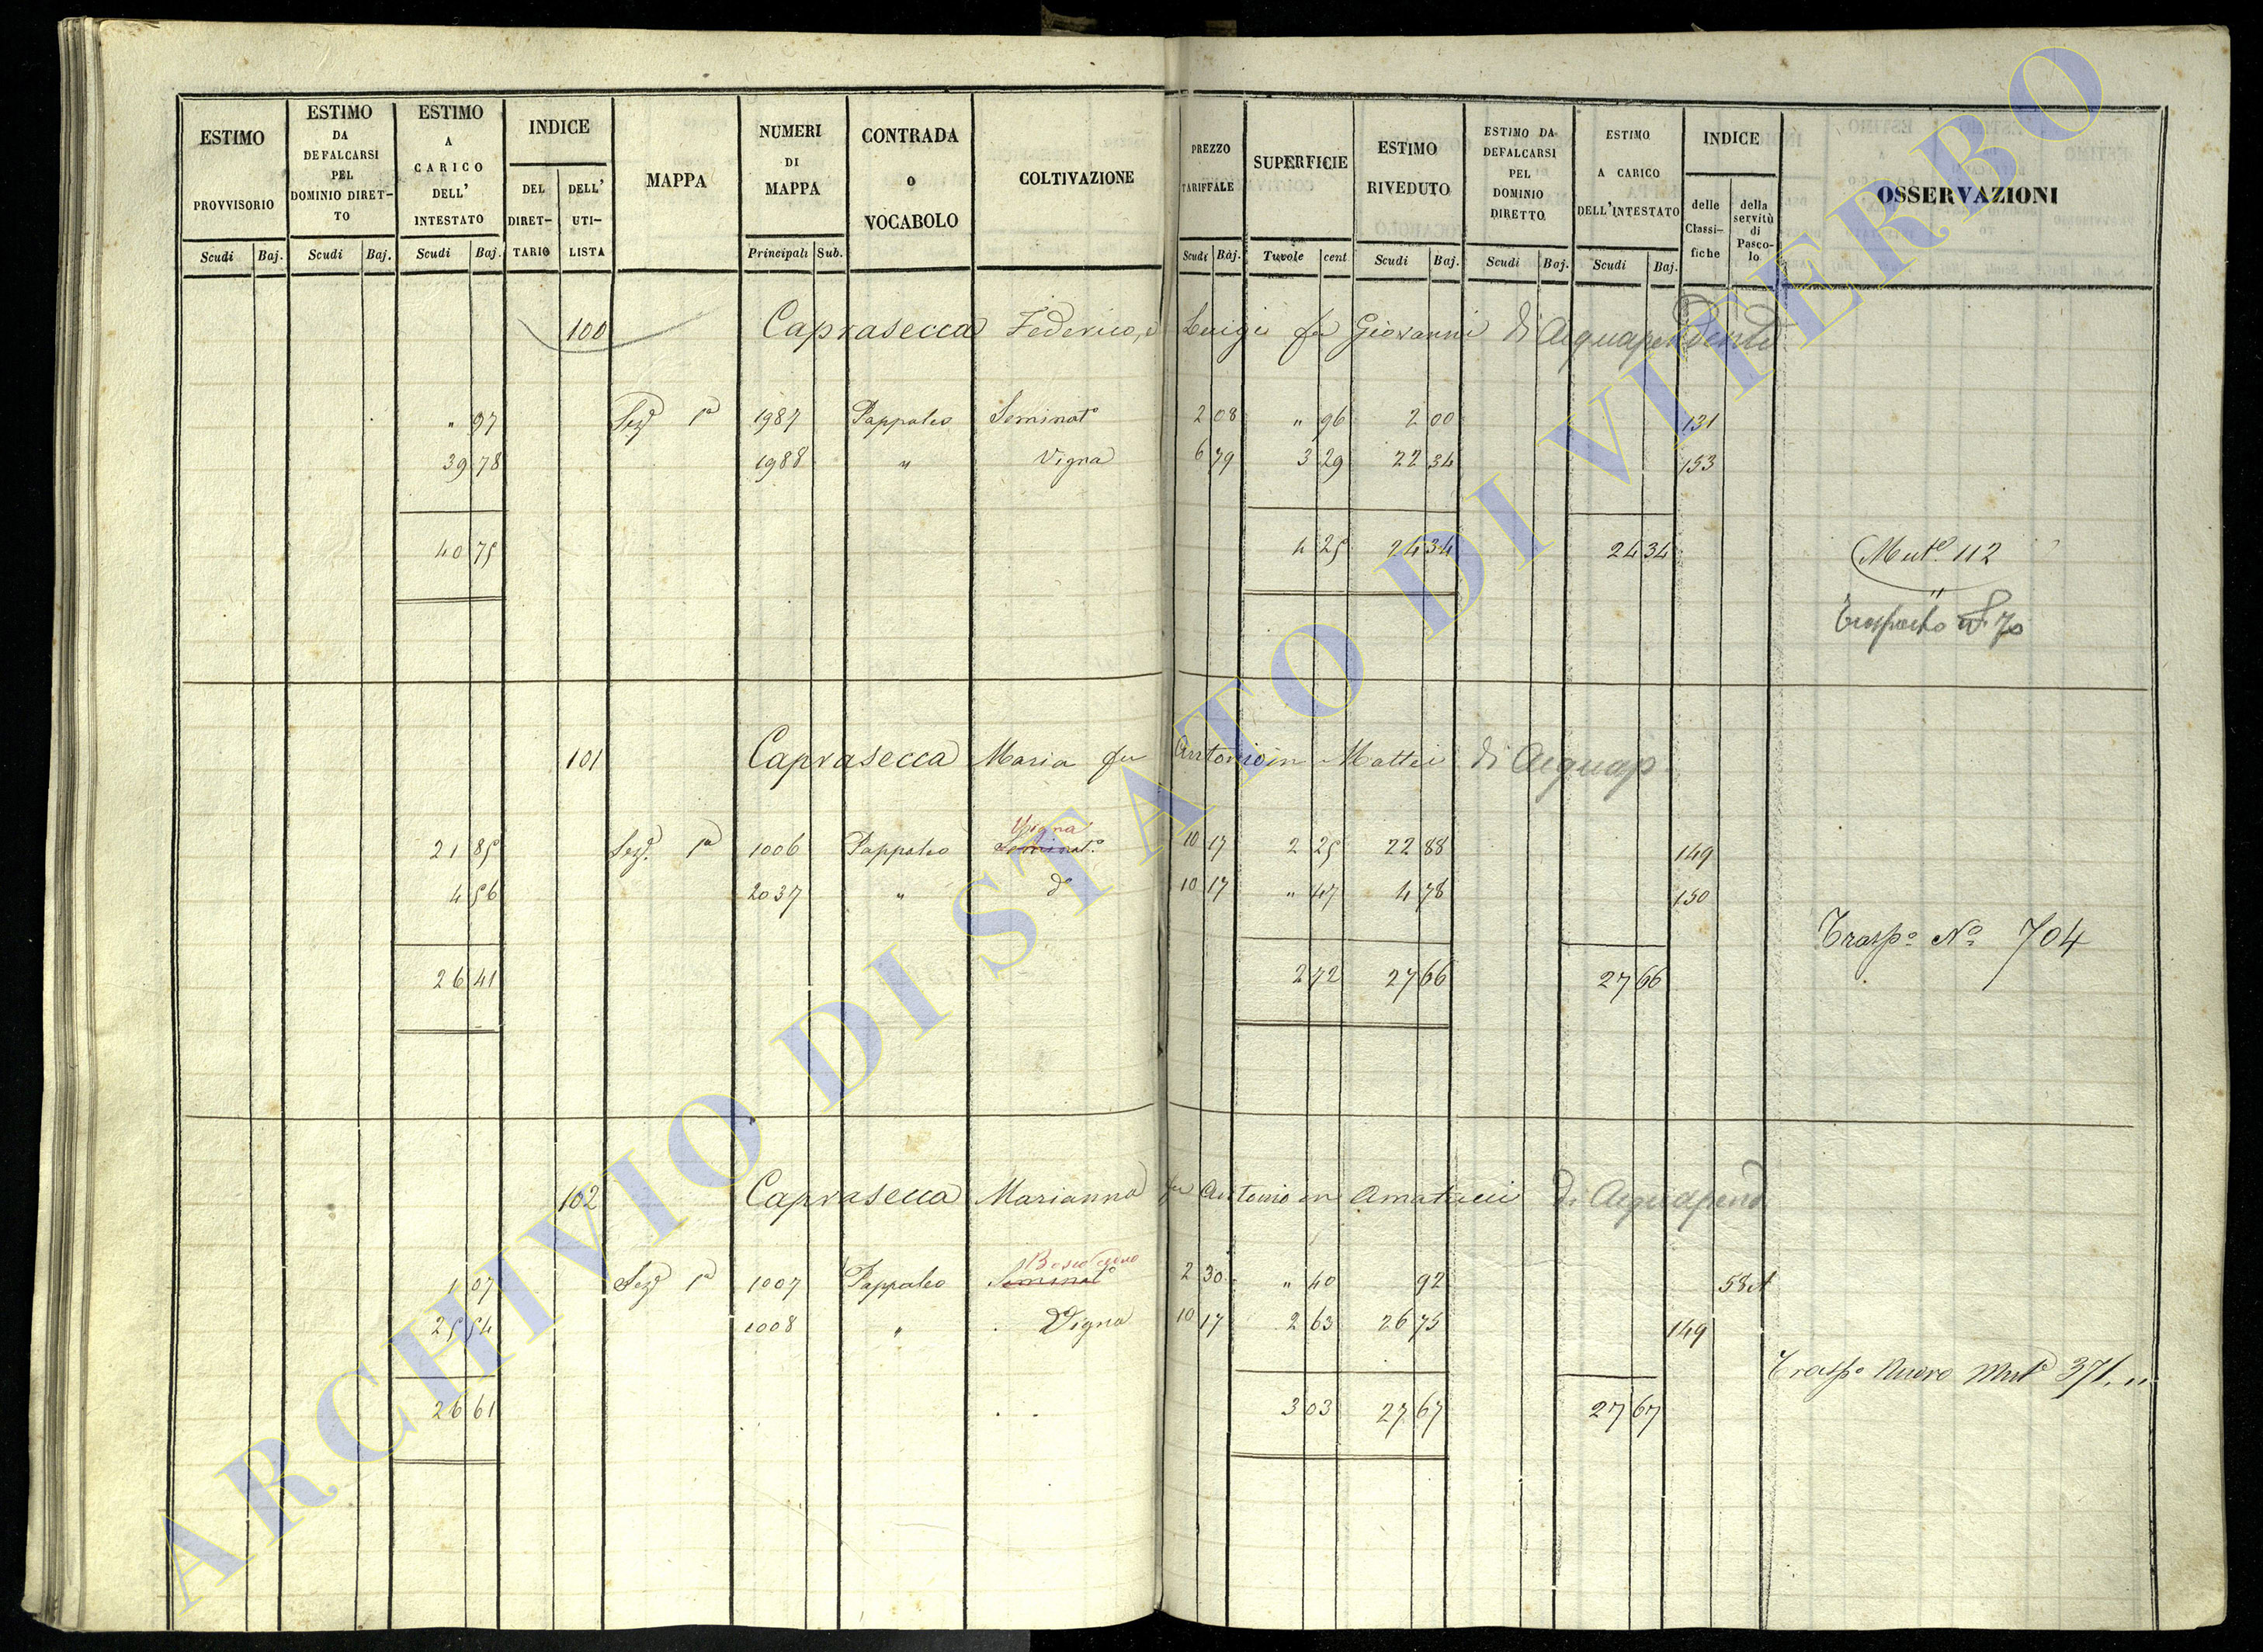 ESTIMO PROVVISORIO ESTIMO DA DEFALCARSI PEL DOMINIO DIRETTO ESTIMO A CARICO DELL' INTESTATO INDICE DEL DIRETTARIO DELL' UTILISTA MAPPA NUMERI DI MAPPA CONTRADA O VOCABOLO COLTIVAZIONE PREZZO TARIFFALE SUPERFICIE ESTIMO RIVEDUTO ESTIMO DA DEFALCARSI PEL DOMINIO DIRETTO ESTIMO A CARICO DELL'INTESTATO INDICE delle Classifiche della servitù di Pascolo OSSERVAZIONI
Scudi Baj. Scudi Baj. Scudi Baj. Principali Sub. Scudi Baj. Tavole cent Scudi Baj. Scudi Baj. Scudi Baj.
100 Caprasecca Federico, e Luigi fu Giovanni di Acquapendente
" 97 Sezᵉ 1ª 1987 Pappaleo Seminatº 2 08 " 96 2 00 131
39 78 1988 " Vigna 6 79 3 29 22 34 153
40 75 4 25 24 34 24 34 Mutª 112
Trasporto al 70
101 Caprasecca Maria fu Antonio in Mattei di Acquap
Vigna
21 85 Sezᵉ 1ª 1006 Pappaleo Seminatº 10 17 2 25 22 88 149
4 56 2037 " dº 10 17 " 47 4 78 150
Traspº Nº 704
26 41 2 72 27 66 27 66
102 Caprasecca Marianna fu Antonio in Amatucci di Acquapend
Bosco ceduo
1 07 Sezᵉ 1ª 1007 Pappaleo Seminatº 2 30 " 40 92 53 A
25 54 1008 " Vigna 10 17 2 63 26 75 149
Traspº Nuovo Mutª 371 "
26 61 3 03 27 67 27 67
ARCHIVIO DI STATO DI VITERBO